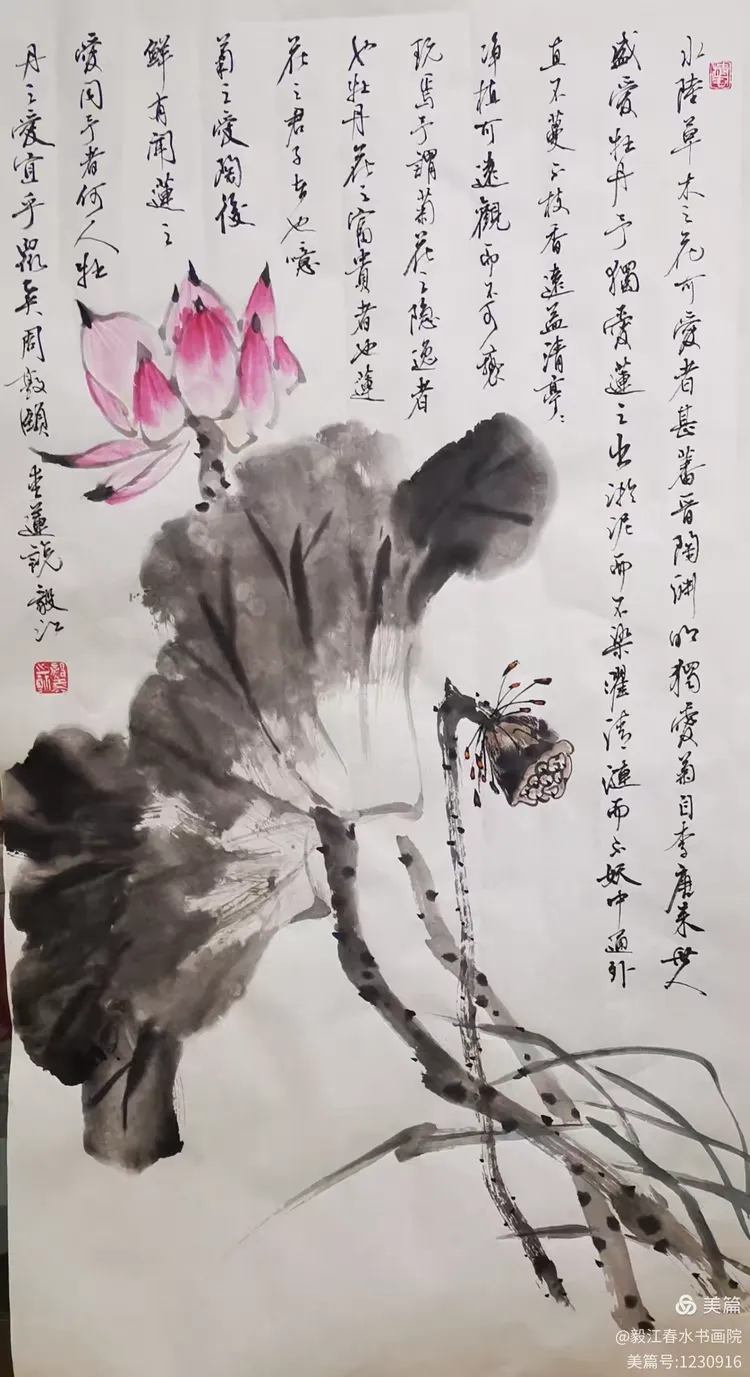 水陸草木之花可愛者甚蕃晋陶渊明獨愛菊自李唐来世人
盛愛牡丹予獨愛蓮之出淤泥而不染濯清漣而不妖中通外
直不蔓不枝香遠益清亭〻
净植可遠觀而不可褻
玩焉予謂菊花之隐逸者
也牡丹花之富貴者也蓮
花之君子者也噫
菊之愛陶後
鮮有聞蓮之
愛同予者何人牡
丹之愛宜乎眾矣周敦頤 愛蓮説 毅江
美篇
@毅江春水书画院
美篇号:1230916